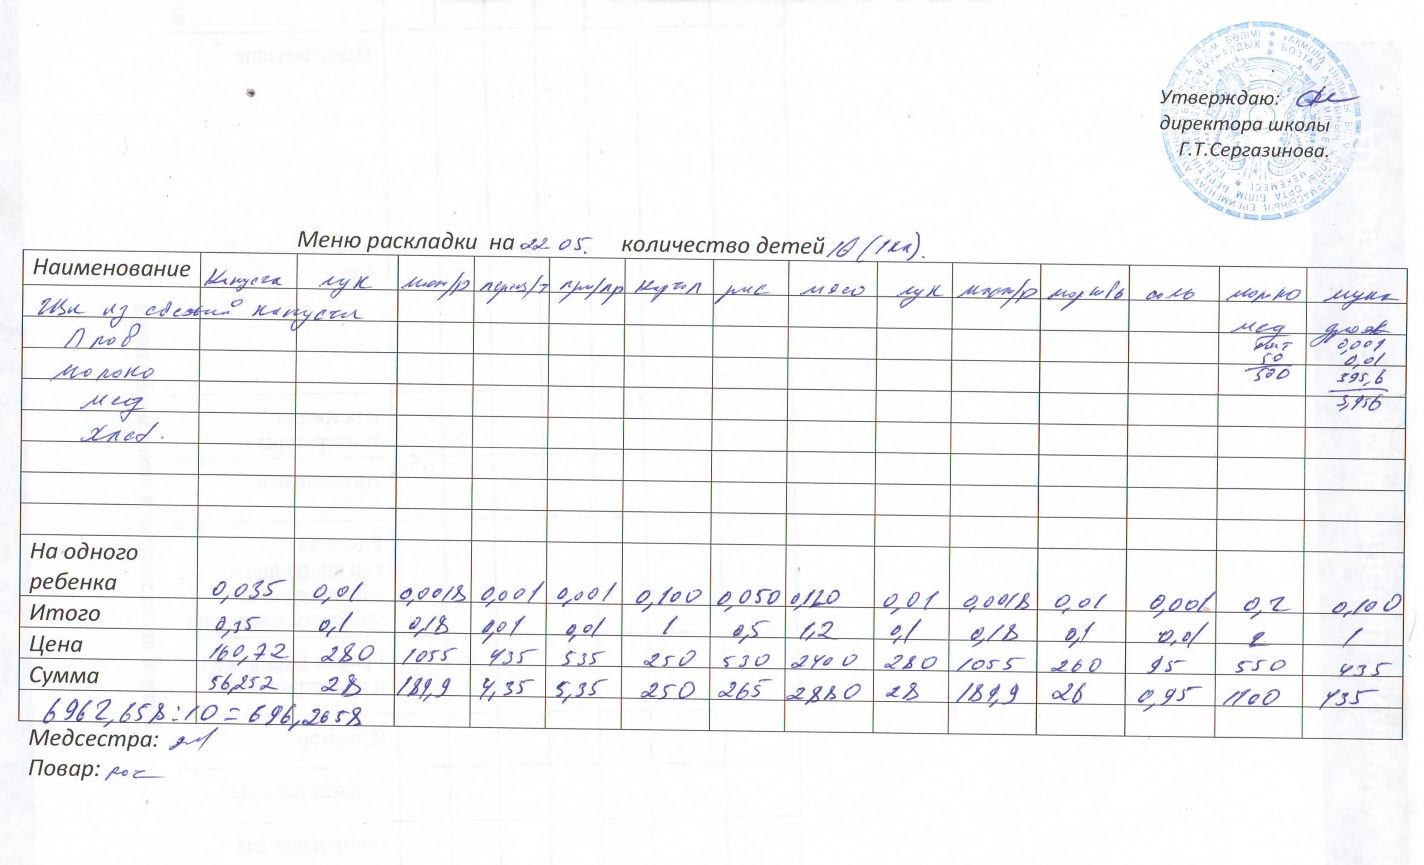 Утверждаю:
директора школы
Г.Т.Сергазинова.
Меню раскладки на 22 05. количество детей 10 (1кл).
Наименование капуста лук мас/р перец/т при/пр картоп рис мясо лук мас/р морковь соль молоко мука
Щи из свежей капусты мед дрож
Плов 0,001
50 0,01
молоко 500 395,6
мед 3,956
хлеб.
На одного
ребенка 0,035 0,01 0,0018 0,001 0,001 0,100 0,050 0,120 0,01 0,0018 0,01 0,001 0,2 0,100
Итого 0,35 0,1 0,18 0,01 0,01 1 0,5 1,2 0,1 0,18 0,1 0,01 2 1
Цена 160,72 280 1055 435 535 250 530 2400 280 1055 260 95 550 435
Сумма 56,252 28 189,9 4,35 5,35 250 265 2880 28 189,9 26 0,95 1100 435
6962,658:10=696,2658
Медсестра:
Повар: